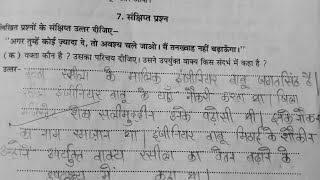 7. संक्षिप्त प्रश्न
लिखित प्रश्नों के संक्षिप्त उत्तर दीजिए–
"अगर तुम्हें कोई ज़्यादा दे, तो अवश्य चले जाओ। मैं तनख्वाह नहीं बढ़ाऊँगा।"
(क) वक्ता कौन है ? उसका परिचय दीजिए। उसने उपर्युक्त वाक्य किस संदर्भ में कहा है ?
उत्तर– रसीला के मालिक इंजीनियर बाबू जगतसिंह हैं
इंजीनियर बाबू के यहाँ नौकरी करता था। जिला
शेख सलीमुद्दीन उनके पड़ोसी थे। इनके चौकीदार
का नाम रमज़ान था। इंजीनियर बाबू
उपर्युक्त वाक्य रसीला का वेतन बढ़ाने के
में कहा था।